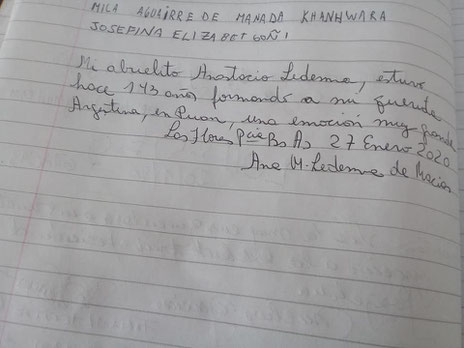 MILA AGUIRRE DE MANADA KHANHWARA
JOSEFINA ELIZABET GOÑI
Mi abuelito Anastacio Ledesma, estuvo
hace 143 años formando a su querida
Argentina, en Puan, una emoción muy grande
Las Flores, Pcia Bs As 27 Enero 2020
Ana M. Ledesma de Macias